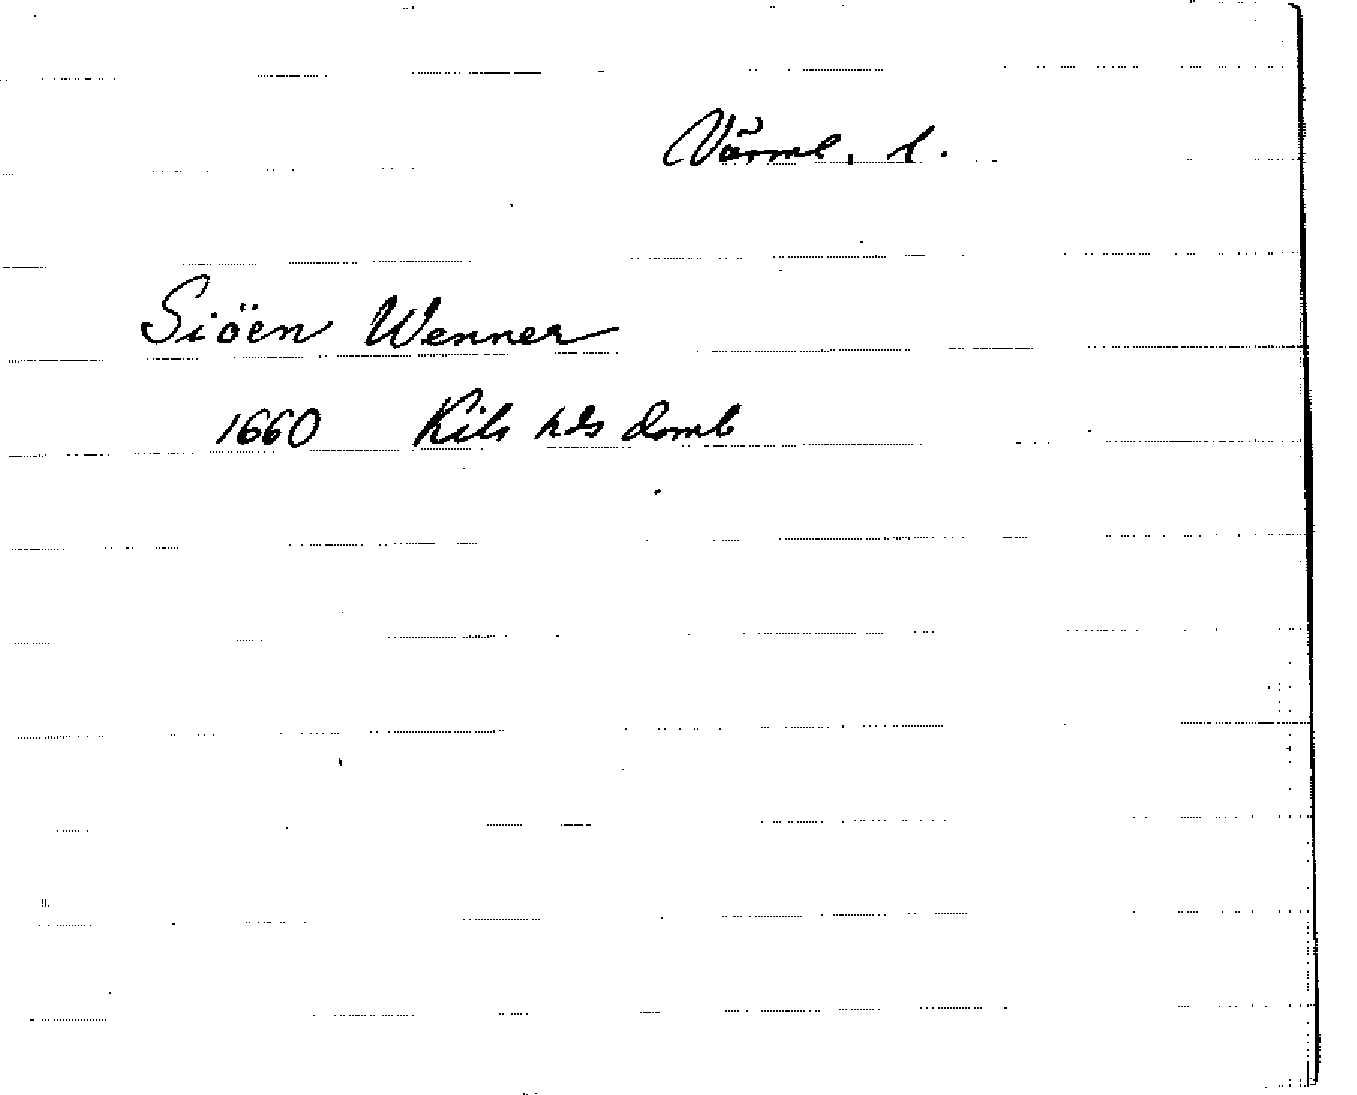 Värml. l.
Siöen Wenner
1660 Kils hds domb